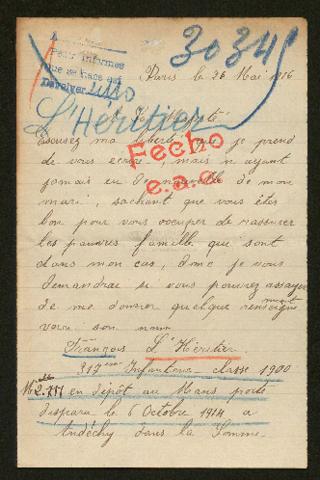 A
Pedir informes
que se hace así
Devolver
3034
Paris le 26 Mai 1916
L'Héritier
Fecho
e.a.c.
Excusez ma liberté que je prend
de vous écrire, mais n'ayant
jamais eu de nouvelle de mon
mari, sachant que vous êtes
bon pour vous occuper de rassurer
les pauvres famille qui sont
dans mon cas, donc je vous
demandrai si vous pouviez assayer
de me donner quelque renseignement
voici son nom
François L'Héritier
317eme Infanterie classe 1900
Mlle 2.757 en dépôt au Mans porté
disparu le 6 Octobre 1914 a
Andéchy dans la Somme